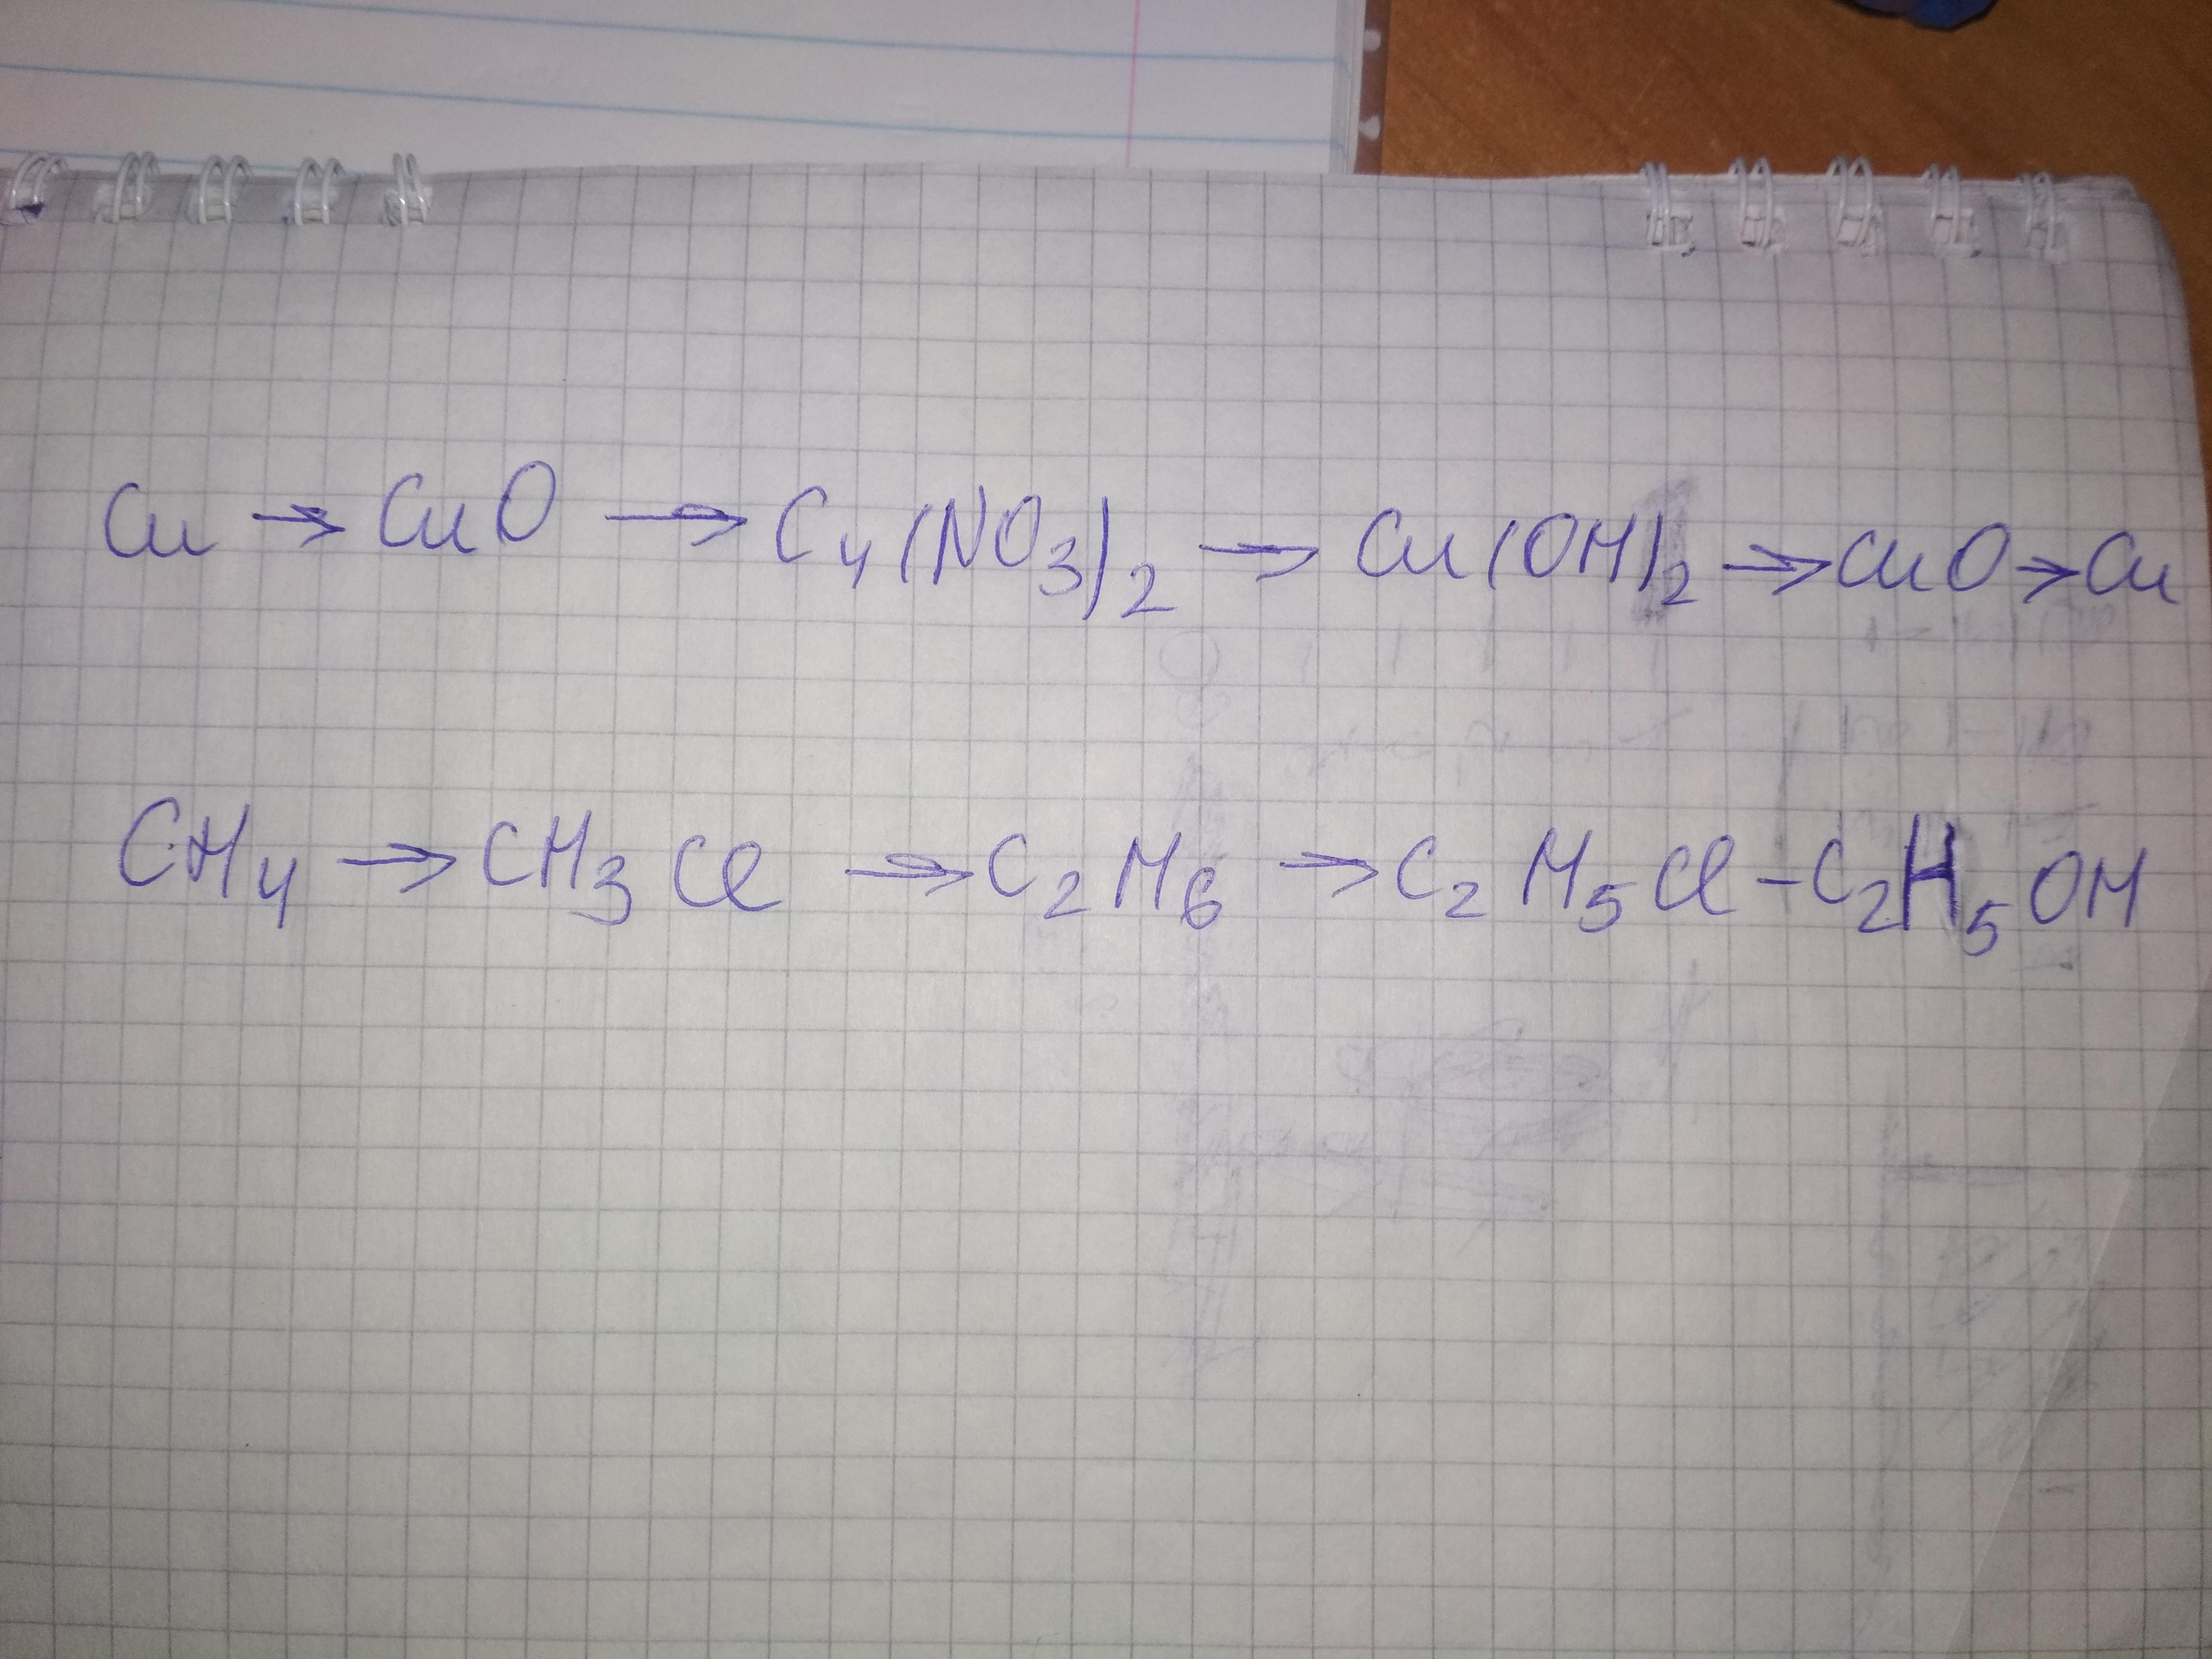 Cu → CuO → Cu(NO₃)₂ → Cu(OH)₂ → CuO → Cu
CH₄ → CH₃Cl → C₂H₆ → C₂H₅Cl – C₂H₅OH